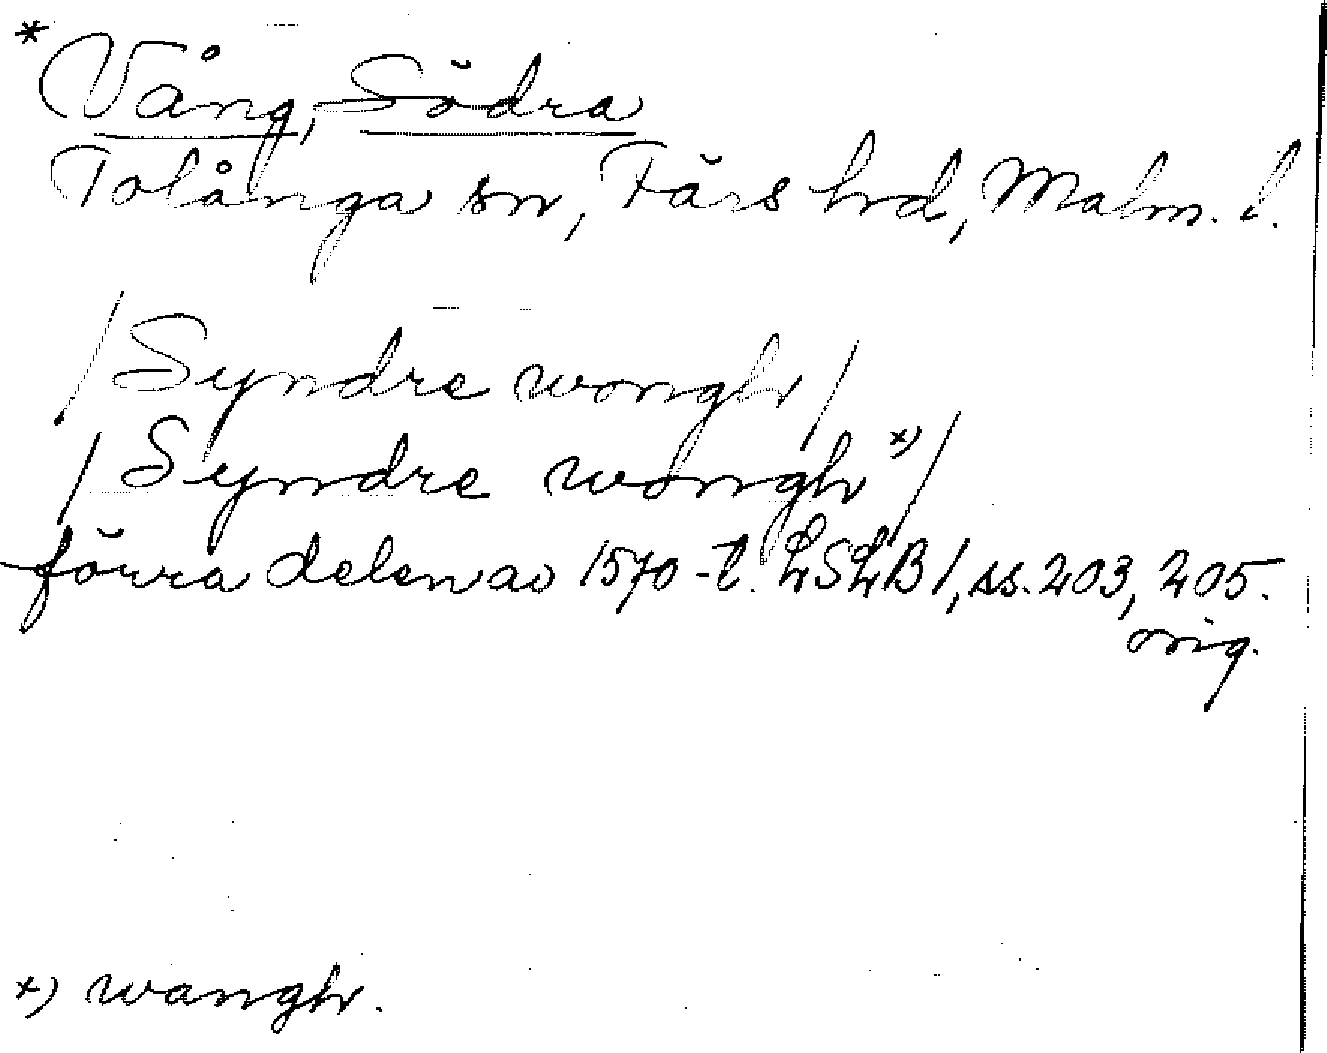 * Vång, Södra
Tolånga sn, Färs hrd, Malm. l.
/Syndre wongh/
/Syndre wongh x)/
förra delen av 1570-t. LSLB 1, ss. 203, 205.
orig.
x) wangh.